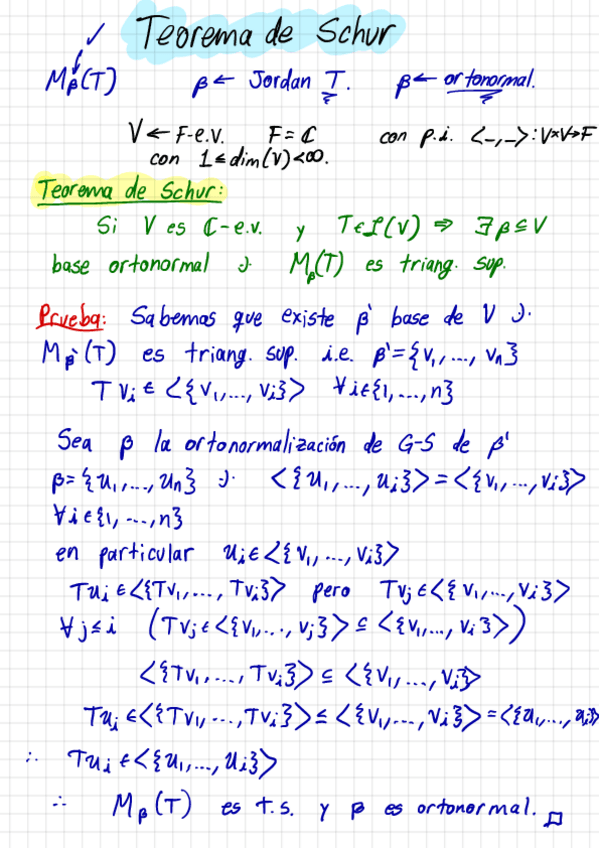 Teorema de Schur
✓ Mβ(T) β ← Jordan T. β ← ortonormal.
V ← F-e.v. F = ℂ con p.i. <-,->: V×V→F
con 1 ≤ dim(V) < ∞.
Teorema de Schur:
Si V es ℂ-e.v. y T ∈ ℒ(V) ⇒ ∃ β ⊆ V
base ortonormal ·)· Mβ(T) es triang. sup.
Prueba: Sabemos que existe β' base de V ·)·
Mβ'(T) es triang. sup. i.e. β' = {v₁, ..., vₙ}
Tvᵢ ∈ <{v₁, ..., vᵢ}> ∀ i ∈ {1, ..., n}
Sea β la ortonormalización de G-S de β'
β = {u₁, ..., uₙ} ·)· <{u₁, ..., uᵢ}> = <{v₁, ..., vᵢ}>
∀ i ∈ {1, ..., n}
en particular uᵢ ∈ <{v₁, ..., vᵢ}>
Tuᵢ ∈ <{Tv₁, ..., Tvᵢ}> pero Tvⱼ ∈ <{v₁, ..., vᵢ}>
∀ j ≤ i (Tvⱼ ∈ <{v₁, ..., vⱼ}> ⊆ <{v₁, ..., vᵢ}>)
<{Tv₁, ..., Tvᵢ}> ⊆ <{v₁, ..., vᵢ}>
Tuᵢ ∈ <{Tv₁, ..., Tvᵢ}> ≤ <{v₁, ..., vᵢ}> = <{u₁, ..., uᵢ}>
∴ Tuᵢ ∈ <{u₁, ..., uᵢ}>
∴ Mβ(T) es t.s. y β es ortonormal. □